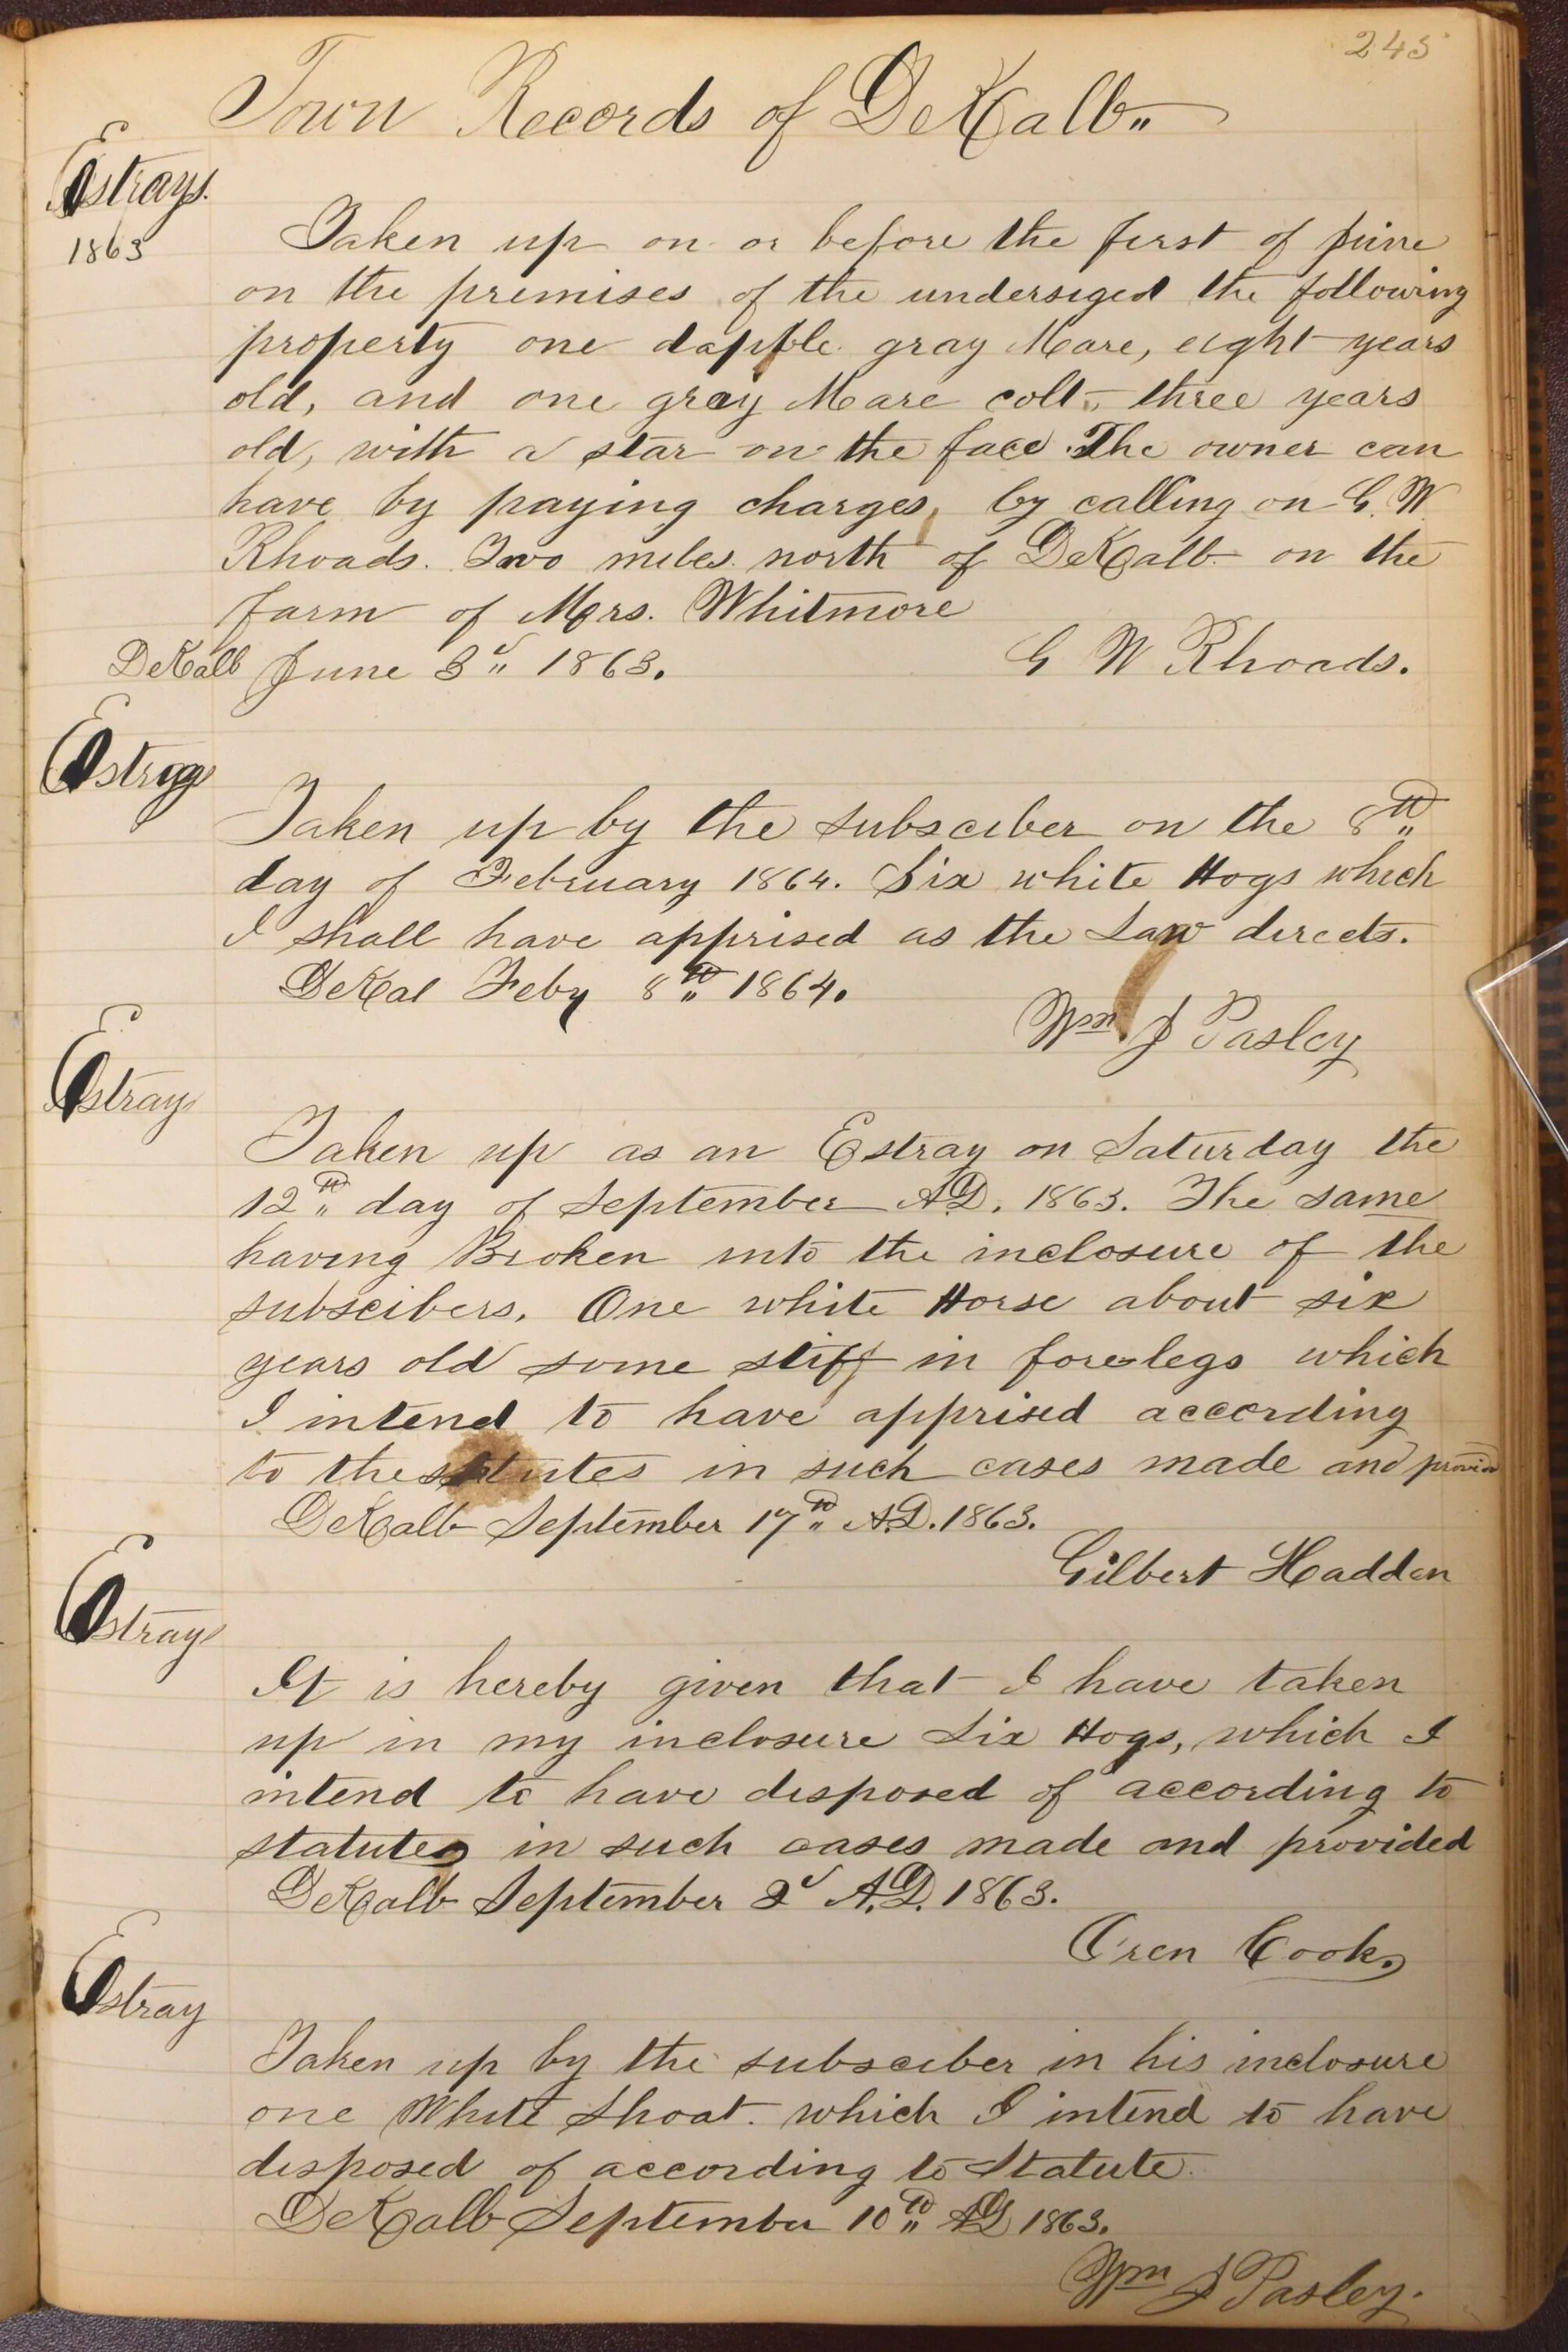 245
Town Records of DeKalb"
Estrays.
1863
Taken up on or before the first of june
on the premises of the undersiged the following
property one dapple gray Mare, eight years
old, and one gray Mare colt, three years
old, with a star on the face. The owner can
have by paying charges, by calling on G. W
Rhoads. Two miles north of DeKalb on the
farm of Mrs. Whitmore
DeKalb June 3d" 1863.
G W Rhoads.
Estray
Taken up by the subsciber on the 8th"
day of February 1864. Six white Hogs which
I shall have apprised as the Law directs.
DeKal Feby 8th" 1864.
Wm. J Pasley
Estray
Taken up as an Estray on Saturday the
12th" day of September A.D. 1863. The same
having Broken into the inclosure of the
subscibers. One white Horse about six
years old some stiff in fore legs which
I intend to have apprised according
to the statutes in such cases made and provided
DeKalb September 17th" A.D. 1863.
Gilbert Hadden
Estray
It is hereby given that I have taken
up in my inclosure Six Hogs, which I
intend to have disposed of according to
statutes in such cases made and provided
DeKalb September 2d A.D. 1863.
Oren Cook.
Estray
Taken up by the subsciber in his inclosure
one White Shoat. which I intend to have
disposed of according to Statute.
DeKalb September 10th" AD 1863.
Wm J Pasley.